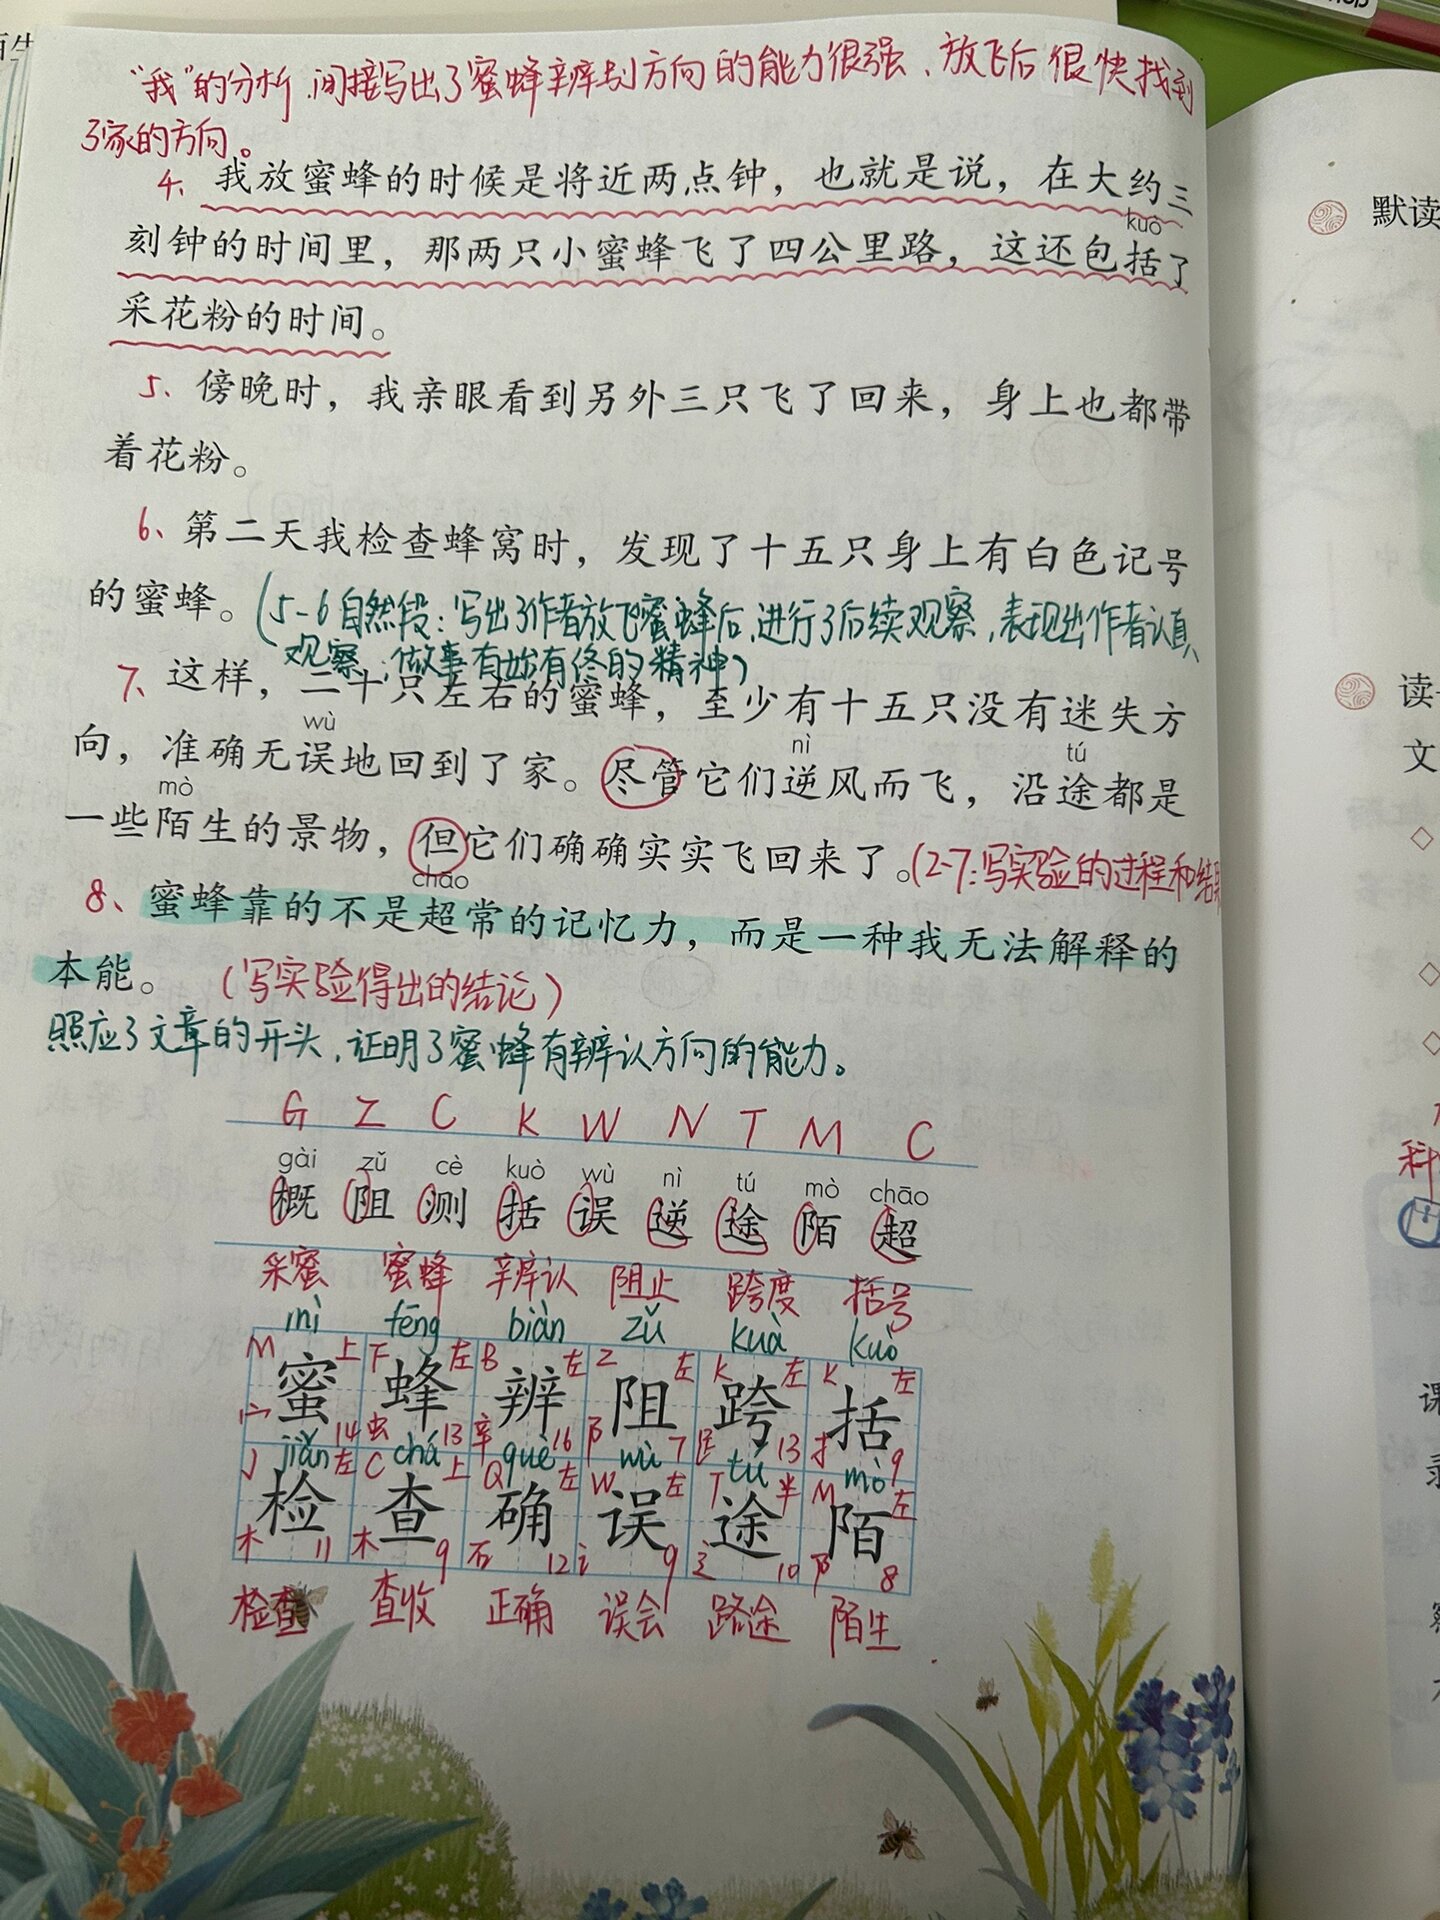 “我”的分析,间接写出了蜜蜂辨别方向的能力很强、放飞后很快找到
了家的方向。
4、我放蜜蜂的时候是将近两点钟，也就是说，在大约三
kuò
刻钟的时间里，那两只小蜜蜂飞了四公里路，这还包括了
采花粉的时间。
5、傍晚时，我亲眼看到另外三只飞了回来，身上也都带
着花粉。
6、第二天我检查蜂窝时，发现了十五只身上有白色记号
的蜜蜂。(5-6自然段：写出了作者放飞蜜蜂后,进行了后续观察,表现出作者认真、
观察；做事有始有终的精神)
7、这样，二十只左右的蜜蜂，至少有十五只没有迷失方
wù nì tú
向，准确无误地回到了家。尽管它们逆风而飞，沿途都是
mò
一些陌生的景物，但它们确确实实飞回来了。(2-7:写实验的过程和结果
chāo
8、蜜蜂靠的不是超常的记忆力，而是一种我无法解释的
本能。(写实验得出的结论)
照应了文章的开头,证明了蜜蜂有辨认方向的能力。
G Z C K W N T M C
gài zǔ cè kuò wù nì tú mò chāo
概 阻 测 括 误 逆 途 陌 超
采蜜 蜜蜂 辨认 阻止 跨度 括号
mì fēng biàn zǔ kuà kuò
M 上 F 左 B 左 Z 左 K 左 K 左
蜜 蜂 辨 阻 跨 括
宀 14 虫 13 辛 16 阝 7 𧾷 13 扌 9
jiǎn chá què wù tú mò
J 左 C 上 Q 左 W 左 T 半 M 左
检 查 确 误 途 陌
木 11 木 9 石 12 讠 9 辶 10 阝 8
检查 查收 正确 误会 路途 陌生
默读
读
文
课
科